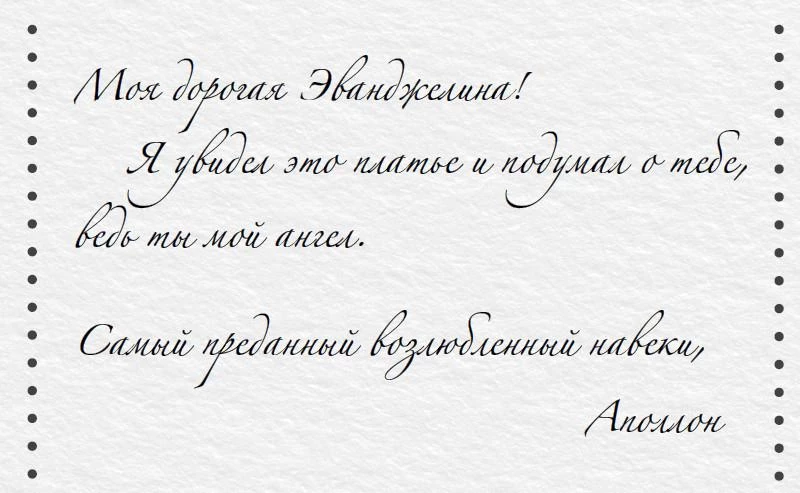 Моя дорогая Эванджелина!
Я увидел это платье и подумал о тебе,
ведь ты мой ангел.
Самый преданный возлюбленный навеки,
Аполлон